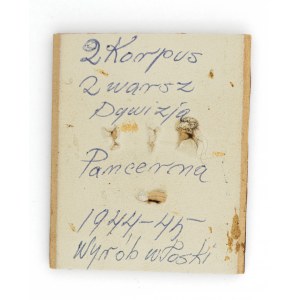 2 Korpus
2 warsz
Dywizja
Pancerna
1944-45
Wyrób włoski